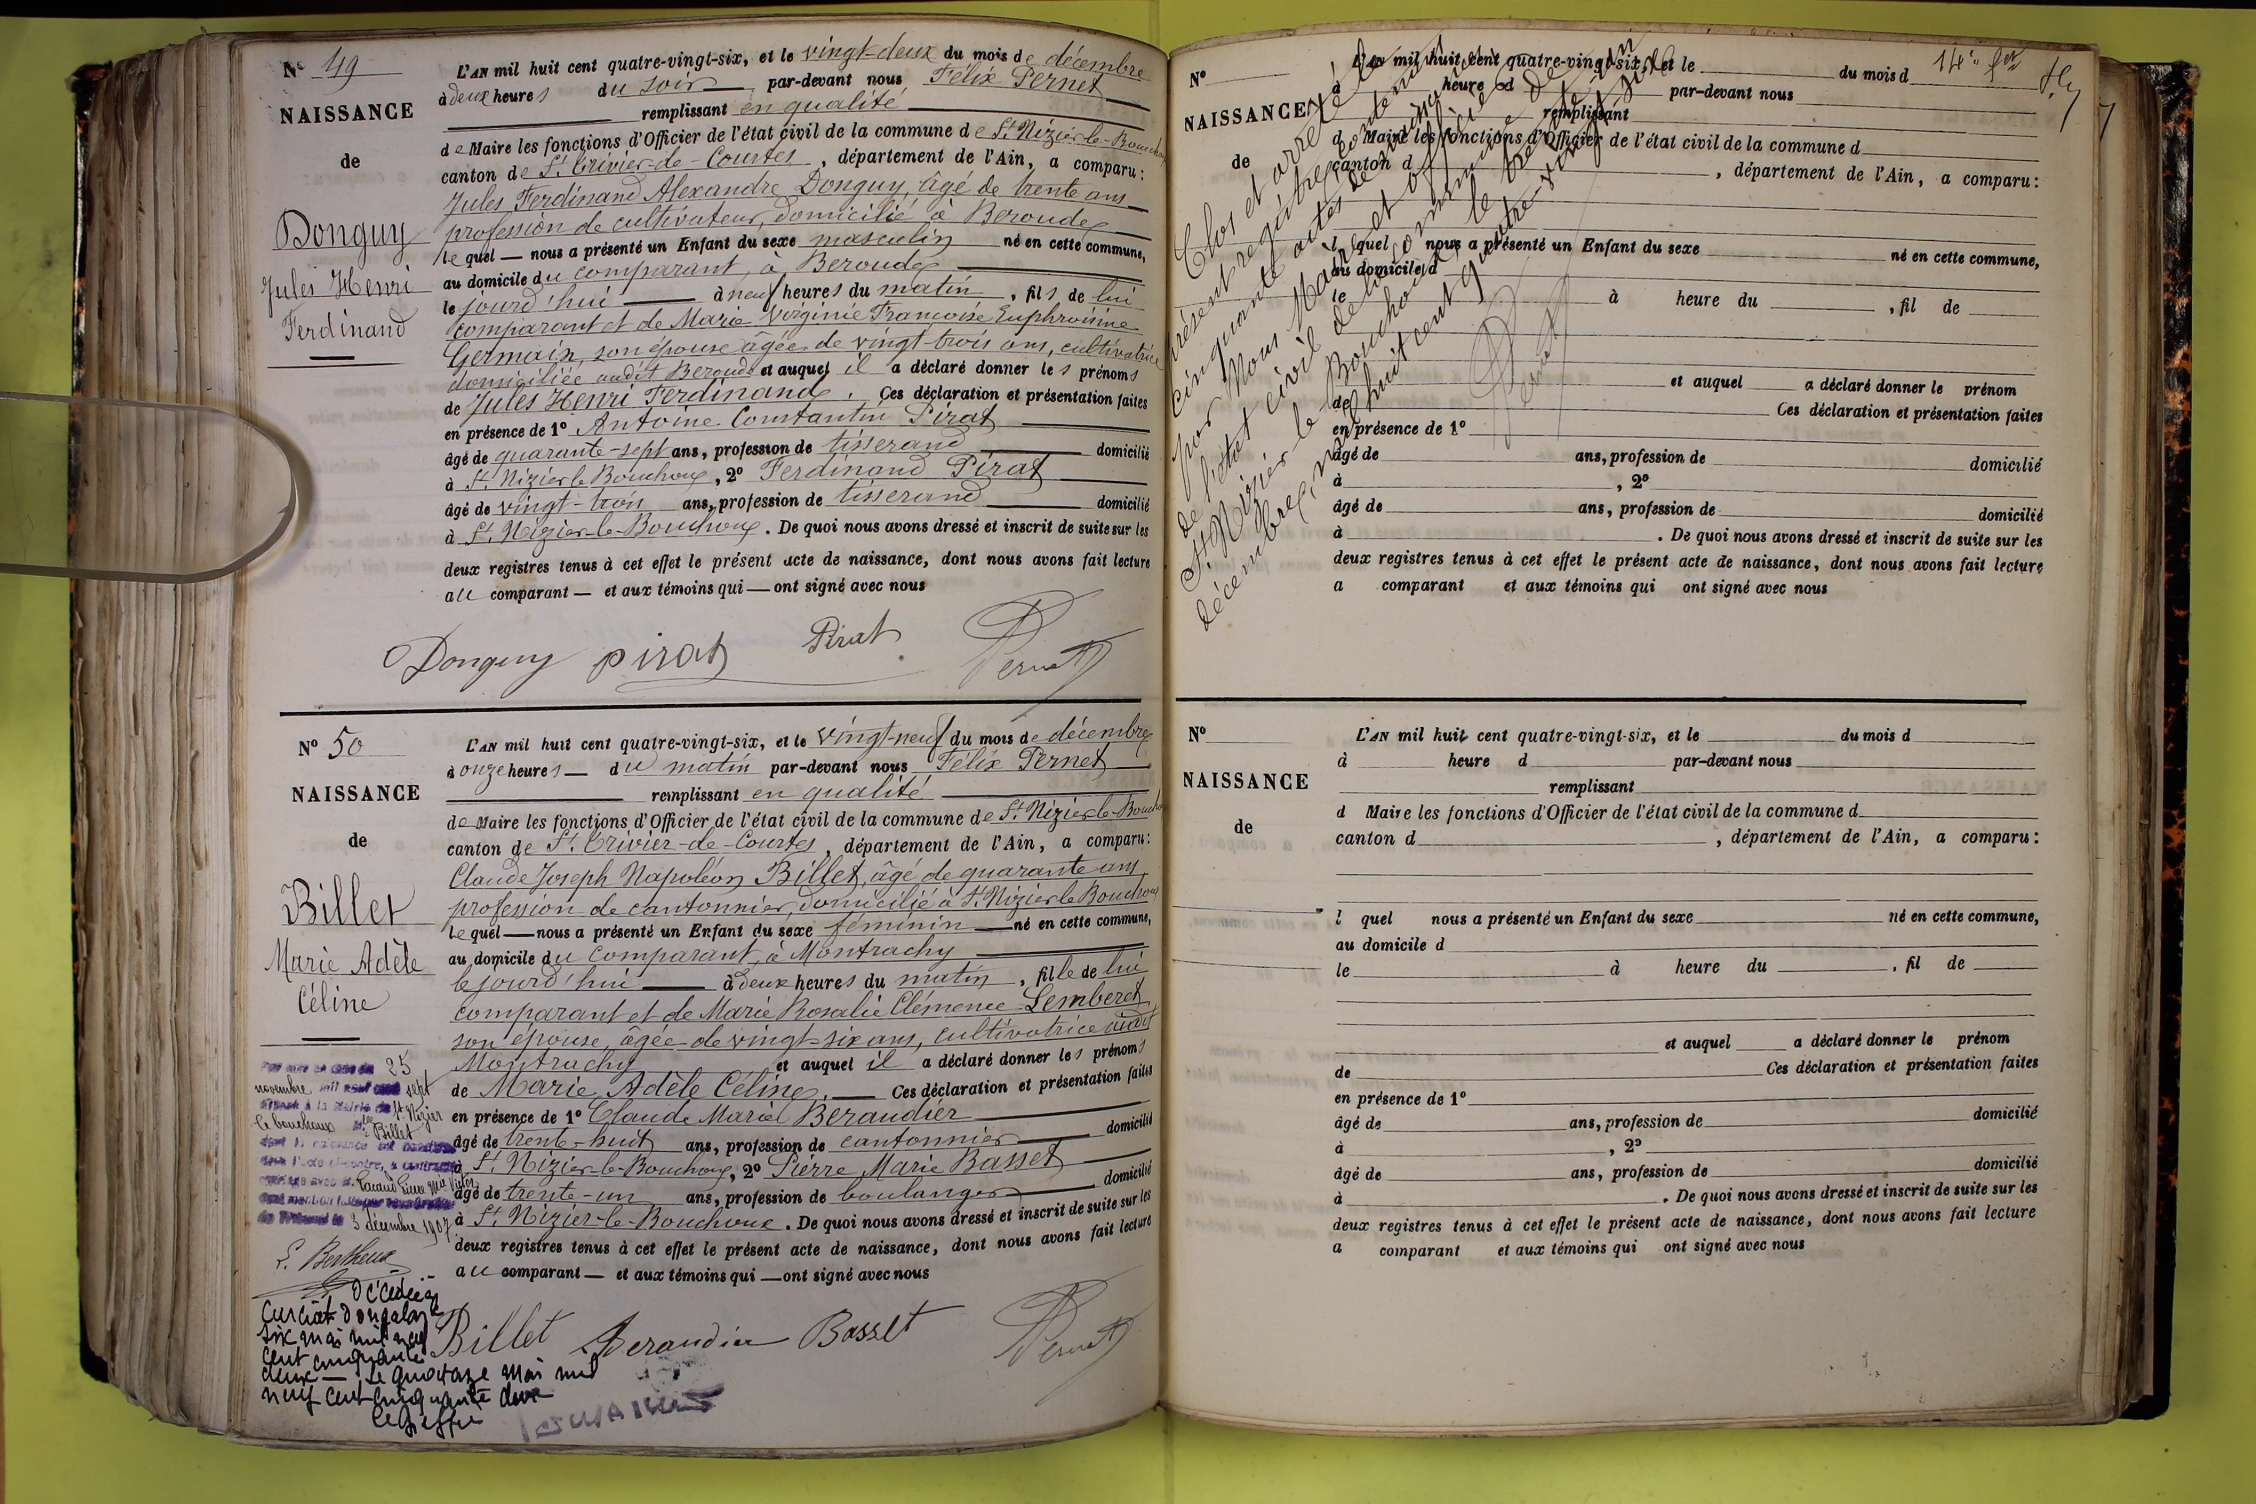 N° 49
NAISSANCE
de
Donguy
Jules Henri
Ferdinand
L'AN mil huit cent quatre-vingt-six, et le vingt-deux du mois de décembre
à deux heures du soir par-devant nous Félix Pernet
remplissant en qualité
de Maire les fonctions d'Officier de l'état civil de la commune de St. Nizier-le-Bouchoux
canton de St. Trivier-de-Courtes, département de l'Ain, a comparu:
Jules Ferdinand Alexandre Donguy, âgé de trente ans
profession de cultivateur, domicilié à Béroudes
lequel — nous a présenté un Enfant du sexe masculin né en cette commune,
au domicile du comparant, à Béroudes
le jourd'hui à neuf heures du matin, fils de lui
comparant et de Marie Virginie Françoise Euphroisine
Germain, son épouse âgée de vingt-trois ans, cultivatrice
domiciliée audit Béroude et auquel il a déclaré donner les prénoms
de Jules Henri Ferdinand. Ces déclaration et présentation faites
en présence de 1° Antoine Constantin Pirat
âgé de quarante-sept ans, profession de tisserand domicilié
à St. Nizier le Bouchoux, 2° Ferdinand Pirat
âgé de vingt-trois ans, profession de tisserand domicilié
à St. Nizier-le-Bouchoux. De quoi nous avons dressé et inscrit de suite sur les
deux registres tenus à cet effet le présent acte de naissance, dont nous avons fait lecture
au comparant — et aux témoins qui — ont signé avec nous
Donguy pirat Pirat Pernet
N° 50
NAISSANCE
de
Billet
Marie Adèle
Céline
L'AN mil huit cent quatre-vingt-six, et le vingt-neuf du mois de décembre
à onze heures — du matin par-devant nous Félix Pernet
remplissant en qualité
de Maire les fonctions d'Officier de l'état civil de la commune de St. Nizier-le-Bouchoux
canton de St. Trivier-de-Courtes, département de l'Ain, a comparu:
Claude Joseph Napoléon Billet, âgé de quarante ans
profession de cantonnier, domicilié à St. Nizier le Bouchoux
lequel — nous a présenté un Enfant du sexe féminin — né en cette commune,
au domicile du comparant, à Montrachy
le jourd'hui à deux heures du matin, fille de lui
comparant et de Marie Rosalie Clémence Lemberet
son épouse, âgée de vingt-six ans, cultivatrice audit
Montrachy et auquel il a déclaré donner les prénoms
de Marie Adèle Céline. — Ces déclaration et présentation faites
en présence de 1° Claude Marie Beraudier
âgé de trente-huit ans, profession de cantonnier domicilié
à St. Nizier-le-Bouchoux, 2° Pierre Marie Basset
âgé de trente-un ans, profession de boulanger domicilié
à St. Nizier-le-Bouchoux. De quoi nous avons dressé et inscrit de suite sur les
deux registres tenus à cet effet le présent acte de naissance, dont nous avons fait lecture
au comparant — et aux témoins qui — ont signé avec nous
25
novembre mil neuf cent sept
à la Mairie de St Nizier
le bouchoux Billet
mariage avec
3 décembre 1907
Décédée
Curciat-Dongalon
six mai mil neuf
cent cinquante
deux — Le quatorze mai mil
neuf cent cinquante deux
Le Greffier
Billet Beraudier Basset Pernet
14e
N°
NAISSANCE
de
L'AN mil huit cent quatre-vingt-six, et le du mois d
à heure d par-devant nous
remplissant
d Maire les fonctions d'Officier de l'état civil de la commune d
canton d , département de l'Ain, a comparu:
l quel nous a présenté un Enfant du sexe né en cette commune,
au domicile d
le à heure du , fil de
et auquel a déclaré donner le prénom
de Ces déclaration et présentation faites
en présence de 1°
âgé de ans, profession de domicilié
à , 2°
âgé de ans, profession de domicilié
à . De quoi nous avons dressé et inscrit de suite sur les
deux registres tenus à cet effet le présent acte de naissance, dont nous avons fait lecture
a comparant et aux témoins qui ont signé avec nous
Clos et arrêté le
présent registre contenant
cinquante actes de naissance
par Nous Maire et officier
de l'état civil de la commune de
St. Nizier-le-Bouchoux, le trente-un
décembre, mil huit cent quatre-vingt-six
Pernet
N°
NAISSANCE
de
L'AN mil huit cent quatre-vingt-six, et le du mois d
à heure d par-devant nous
remplissant
d Maire les fonctions d'Officier de l'état civil de la commune d
canton d , département de l'Ain, a comparu:
l quel nous a présenté un Enfant du sexe né en cette commune,
au domicile d
le à heure du , fil de
et auquel a déclaré donner le prénom
de Ces déclaration et présentation faites
en présence de 1°
âgé de ans, profession de domicilié
à , 2°
âgé de ans, profession de domicilié
à . De quoi nous avons dressé et inscrit de suite sur les
deux registres tenus à cet effet le présent acte de naissance, dont nous avons fait lecture
a comparant et aux témoins qui ont signé avec nous